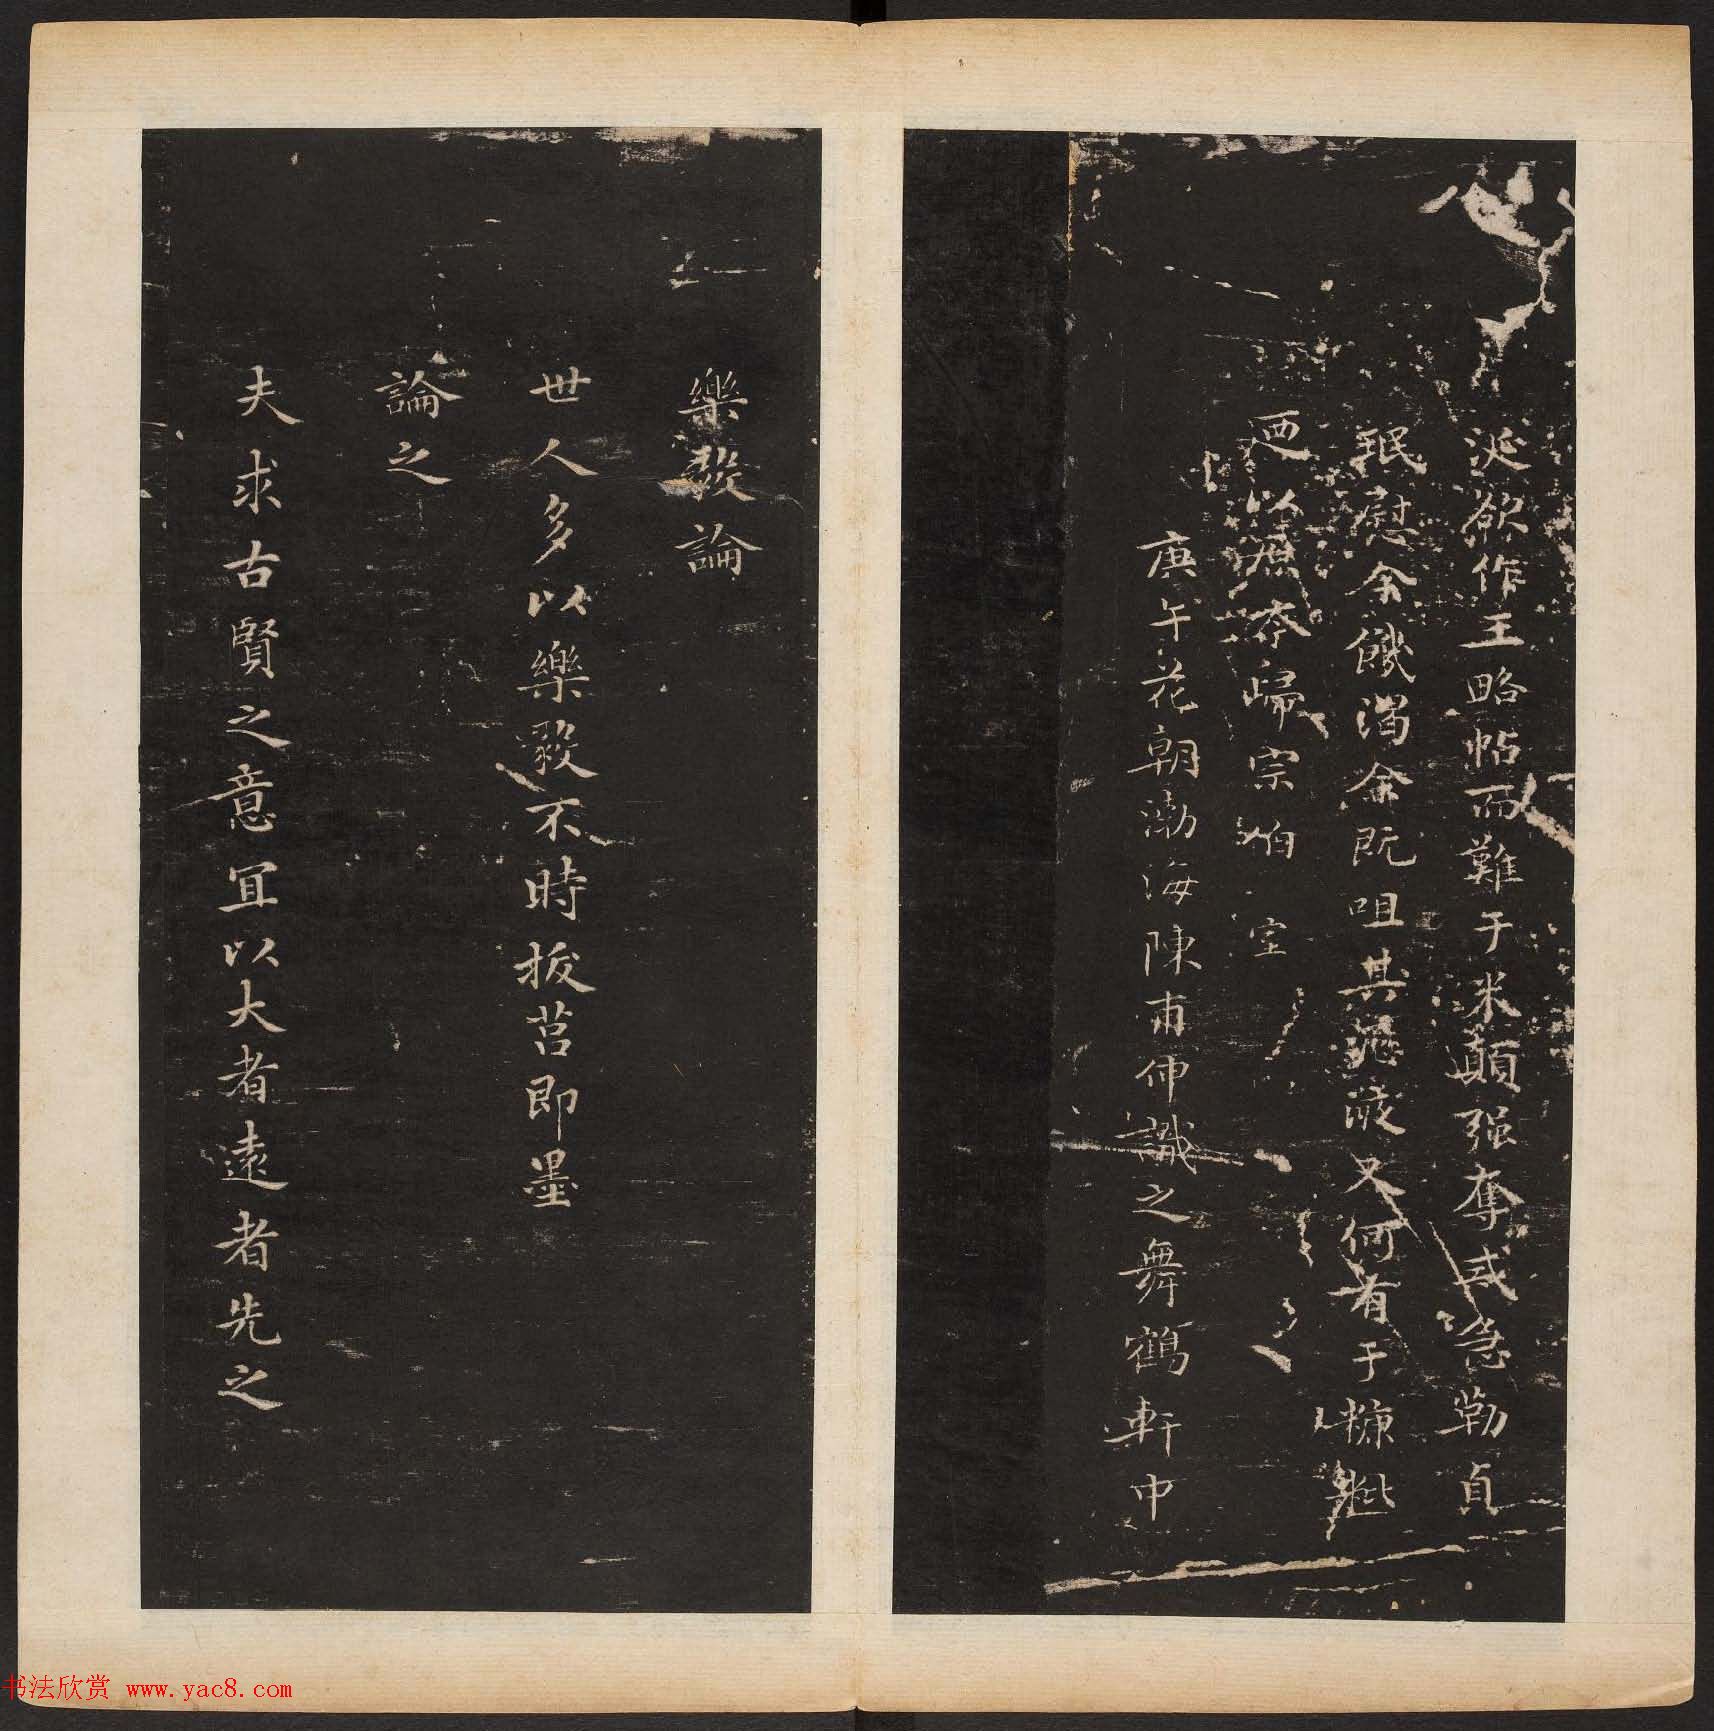 涎欲作王略帖而難于米顛强奪或急勒貞
珉慰余饑渴余既咀其瓊液又何有于糠粃
迺以無奈歸宗伯室
庚午花朝渤海陳甫伸識之舞鶴軒中
樂毅論
世人多以樂毅不時拔莒即墨
論之
夫求古賢之意宜以大者遠者先之
书法欣赏 www.yac8.com